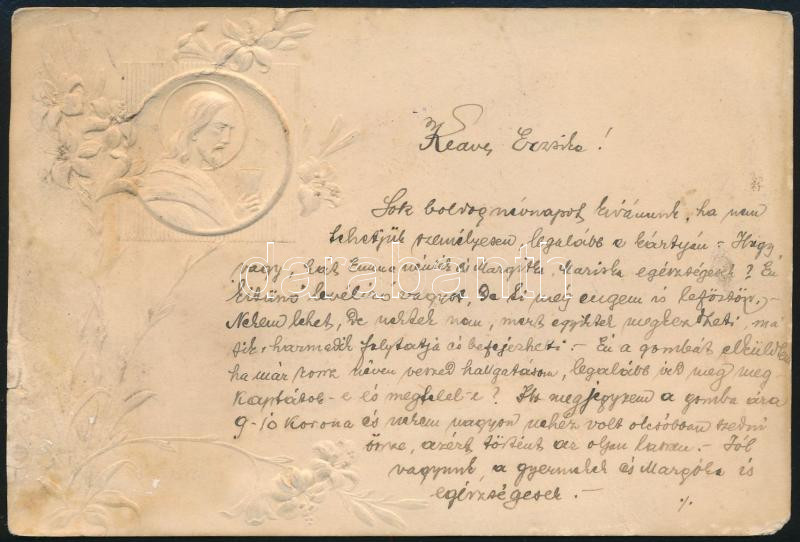 Kedves Erzsike!
Sok boldog névnapot kívánunk, ha nem
tehetjük személyesen legalább e kártyán – Hogy
vagy, hát Emma néni és Margitka, Mariska egészségesek? Én
kitünő levéliró vagyok, De ti meg engem is lefőztök, –
Nekem lehet, De nektek nem, mert egyiktek megkezdheti, má-
sik, harmadik folytatja és befejezheti. – Én a gombát elküldtem
ha már rossz néven veszed hallgatásom, legalább ird meg meg-
kaptátok-e és megfelel-e? Itt megjegyzem a gomba ára
9-10 korona és nekem nagyon nehéz volt olcsóbban szedni
össze, azért történt az olyan lassan. – Jól
vagyunk, a gyermekek és Margitka is
egészségesek. –
·/.
darabanth